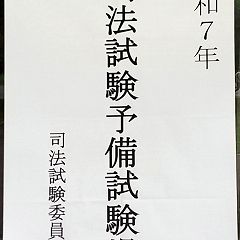 和7年
司法試験予備試験場
司法試験委員